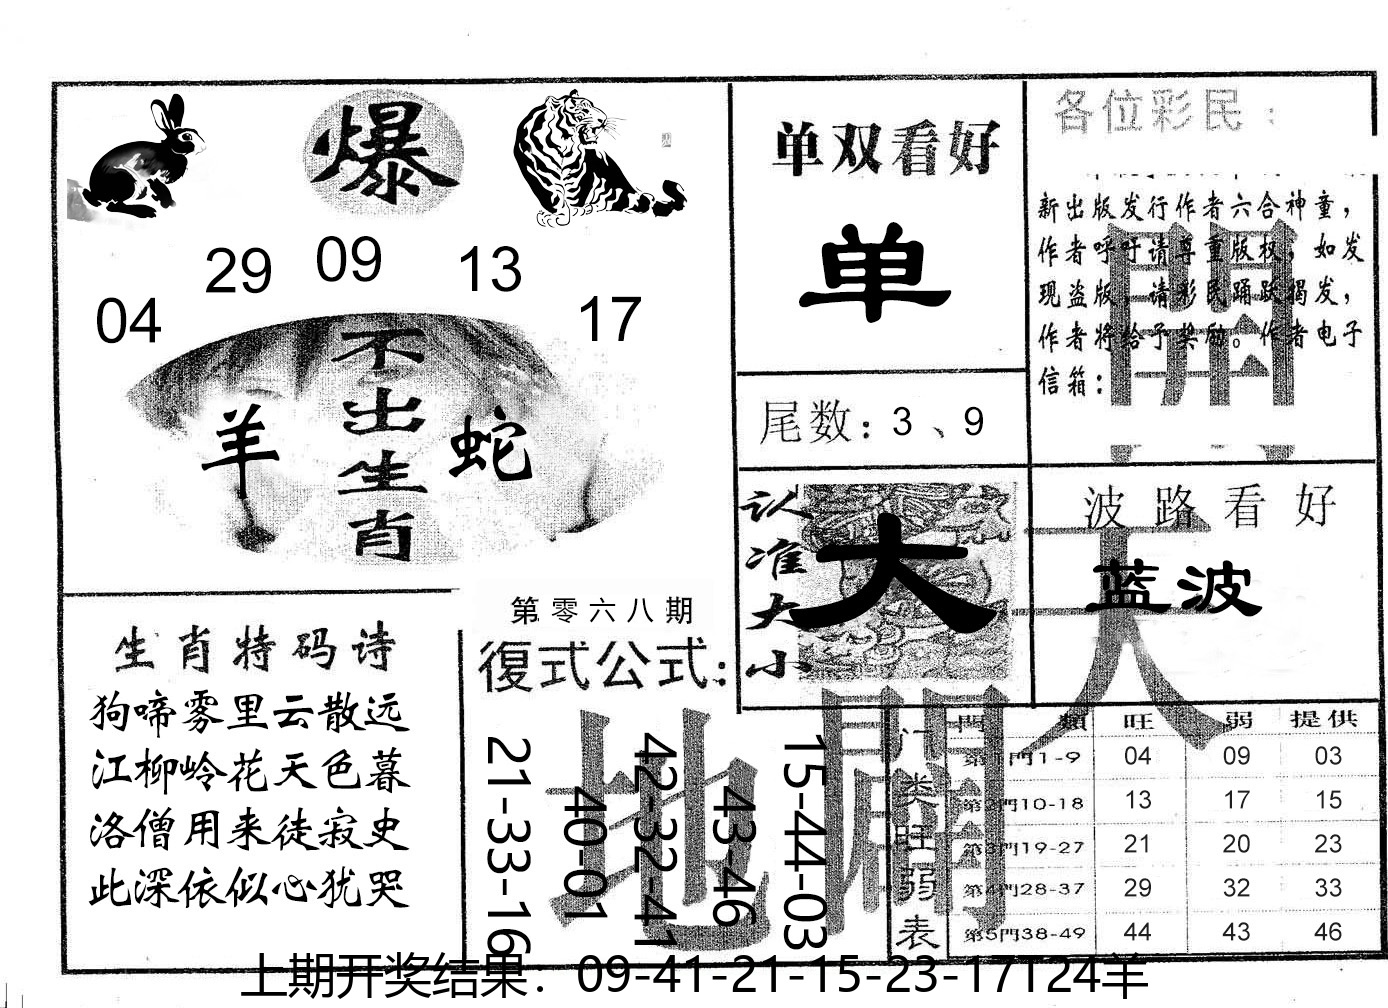 爆
04 29 09 13 17
不出生肖
羊 蛇
单双看好
单
尾数: 3、9
各位彩民:
新出版发行作者六合神童，
作者呼吁请尊重版权，如发
现盗版，请彩民踊跃揭发，
作者将给予奖励。作者电子
信箱:
開
认准大小
大
波路看好
蓝波
天
生肖特码诗
狗啼雾里云散远
江柳岭花天色暮
洛僧用来徒寂史
此深依似心犹哭
第零六八期
復式公式:
21-33-16
40-01
42-32-41
43-46
15-44-03
地
開
门类旺弱表
門 類 旺 弱 提供
第1門1-9 04 09 03
第2門10-18 13 17 15
第3門19-27 21 20 23
第4門28-37 29 32 33
第5門38-49 44 43 46
上期开奖结果：09-41-21-15-23-17T24羊